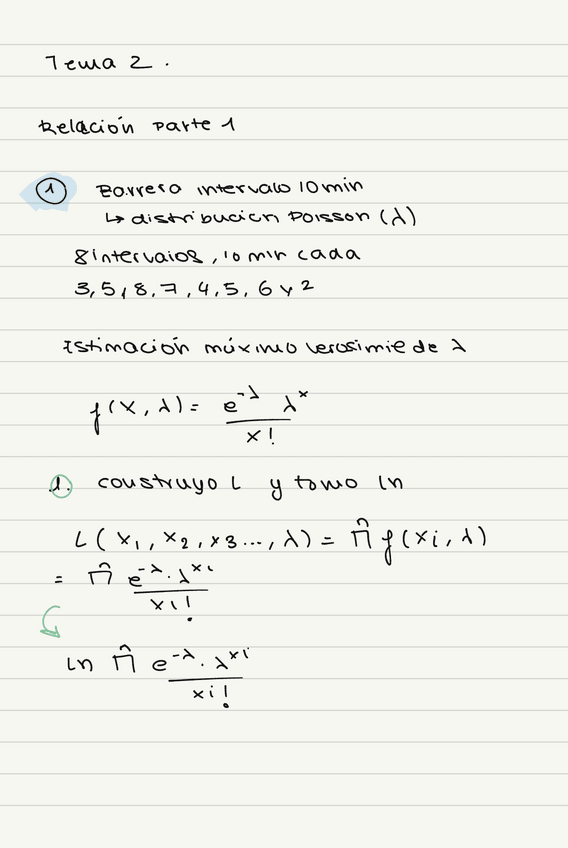 Tema 2.
Relación Parte 1
① Barrera intervalo 10 min
↳ distribución Poisson (λ)
8 intervalos, 10 min cada
3, 5, 8, 7, 4, 5, 6 y 2
Estimación máximo verosimil de λ
f(x, λ) = e^-λ λ^x / x!
1. construyo L y tomo ln
L(x₁, x₂, x3..., λ) = ∏ⁿ f(xi, λ)
= ∏ⁿ e^-λ · λ^xi / xi!
Ln ∏ⁿ e^-λ · λ^xi / xi!